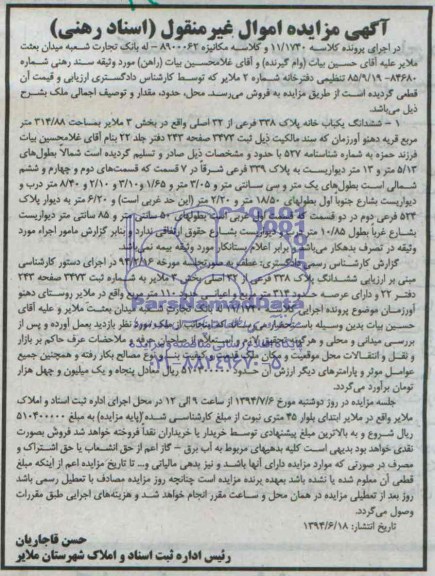 آگهی مزایده اموال غیرمنقول (اسناد رهنی)
در اجرای پرونده کلاسه ۱۱/۱۷۳۰ و کلاسه مکانیزه ۸۹۰۰۰۶۲ – له بانک تجارت شعبه میدان بعثت
ملایر علیه آقای حسین بیات (وام گیرنده) و آقای غلامحسین بیات (راهن) مورد وثیقه سند رهنی شماره
۸۳۶۸۰- ۸۵/۹/۱۹ تنظیمی دفترخانه شماره ۲ ملایر که توسط کارشناس دادگستری ارزیابی و قیمت آن
قطعی گردیده است از طریق مزایده به فروش می‌رسد. محل، حدود، مقدار و توصیف اجمالی ملک بشرح
ذیل می‌باشد.
۱ – ششدانگ یکباب خانه پلاک ۳۳۸ فرعی از ۳۲ اصلی واقع در بخش ۳ ملایر بمساحت ۳۱۴/۸۸ متر
مربع قریه دهنو آورزمان که سند مالکیت ذیل ثبت ۳۴۷۳ صفحه ۲۳۳ دفتر جلد ۲۲ بنام آقای غلامحسین بیات
فرزند حمزه به شماره شناسنامه ۵۲۷ با حدود و مشخصات ذیل صادر و تسلیم گردیده است شمالاً بطول‌های
۵/۱۳ متر و ۱۳ متر دیواریست به پلاک ۳۳۹ فرعی شرقاً در ۷ قسمت که قسمت‌های دوم و چهارم و ششم
شمالی است بطول‌های یک متر و سی سانتی متر و ۳/۰۵ متر و ۱/۶۵ و ۳/۱۰ و ۲/۱۰ و ۸/۴۰ متر درب و
دیواریست بشارع جنوباً اول بطولهای ۱۸/۵۰ متر و ۲/۲۰ متر (این حد غربی است) و ۶/۲۰ متر به دیوار پلاک
۵۳۴ فرعی دوم در دو قسمت که قسمت غربی است بطولهای ۵۰ سانتی متر و ۸۵ سانتی متر دیواریست
بشارع غرباً بطول ۱۰/۸۵ متر درب و دیواریست بشارع حقوق ارتفاقی ندارد و بنابر گزارش مامور اجراء مورد
وثیقه در تصرف بدهکار می‌باشد و برابر اعلام بستانکار مورد وثیقه بیمه نمی‌باشد.
گزارش کارشناس رسمی دادگستری: عطف به صورتجلسه مورخه ۹۴/۲/۱۶ در اجرای دستور کارشناسی
مبنی بر ارزیابی ششدانگ پلاک ۳۳۸ فرعی از ۳۲ اصلی بخش ۳ ملایر به شماره ثبت ۳۴۷۳ صفحه ۲۳۳
دفتر ۲۲ و دارای عرصه حدود ۳۱۴ متر مربع و اعیانی حدود ۱۱۰ متر مربع واقع در ملایر روستای دهنو
آورزمان موضوع پرونده اجرایی کلاسه بانک تجارت شعبه میدان بعثت ملایر و علیه آقای
حسین بیات بدین وسیله باستحضار می‌رساند که اینجانب از ملک مورد نظر بازدید بعمل آورده و پس از
بررسی میدانی و محلی و هرگونه تحقیق لازم و استعلام از صاحبان حرفه و ملاحضات عرف حاکم بر بازار
و نقل و انتقالات محل موقعیت و مکان ملک قدمت و کیفیت بنا و نوع مصالح بکار رفته و همچنین جمیع
عوامل موثر و پارامترهای دیگر ارزش آن حدود ریال معادل پنجاه و یک میلیون و چهل هزار
تومان برآورد می‌گردد.
جلسه مزایده در روز دوشنبه مورخ ۱۳۹۴/۷/۶ از ساعت ۹ الی ۱۲ در محل اجرای اداره ثبت اسناد و املاک
ملایر واقع در ملایر ابتدای بلوار ۴۵ متری نبوت از مبلغ کارشناسی شده(پایه مزایده) به مبلغ ۵۱۰۴۰۰۰۰۰
ریال شروع و به بالاترین مبلغ پیشنهادی توسط خریدار یا خریداران نقداً فروخته خواهد شد فروش بصورت
نقدی خواهد بود بدیهی است کلیه بدهیهای مربوط به آب برق – گاز اعم از حق انشعاب یا حق اشتراک و
مصرف در صورتی که مورد مزایده دارای آنها باشد و نیز بدهی مالیاتی و... تا تاریخ مزایده اعم از اینکه مبلغ
قطعی آن معلوم شده یا نشده باشد بعهده برنده مزایده است چنانچه روز مزایده مصادف با تعطیل رسمی باشد
روز بعد از تعطیلی مزایده در همان محل و ساعت مقرر انجام خواهد شد و هزینه‌های اجرایی طبق مقررات
وصول می‌گردد.
تاریخ انتشار: ۱۳۹۴/۶/۱۸
حسن قاجاریان
رئیس اداره ثبت اسناد و املاک شهرستان ملایر
ParsNamadData
۰۲۱-۸۸۳۴۹۶۷۰-۵